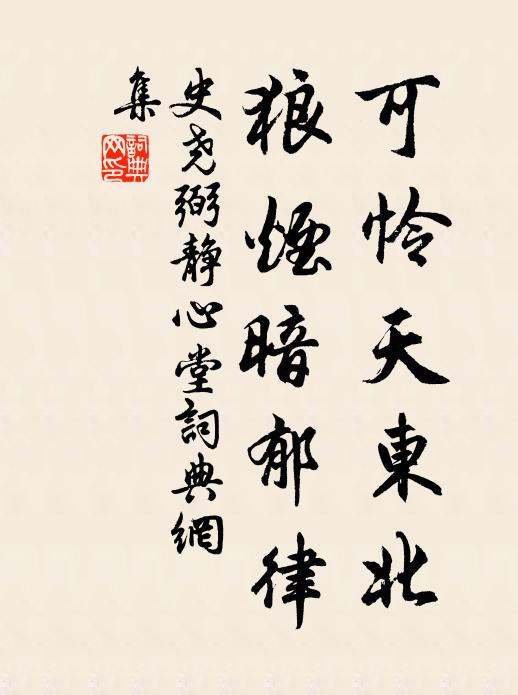 可怜天東北
狼煙暗郁律
史尧弼静心堂詞典網
集
詞典網印